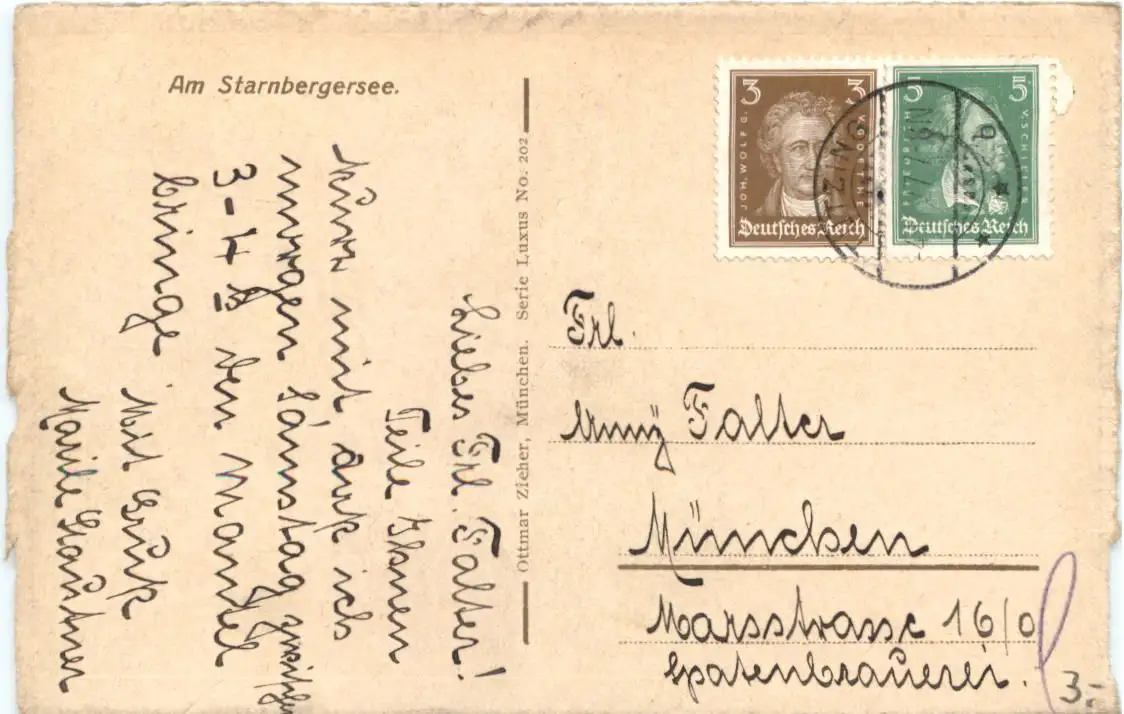 Am Starnbergersee.
Liebes Frl. Falter!
Teile Ihnen
kurz mit, dass ich
morgen Samstag zwischen
3-4 h den Mantel
bringe
Mit Gruß
Marile
Ottmar Zieher, München. Serie Luxus No. 202
3 3
JOH. WOLFG. V. GOETHE
Deutsches Reich
5 5
FRIEDRICH V. SCHILLER
Deutsches Reich
Frl.
Anny Falter
München
Marsstrasse 16/0
Spatenbrauerei.
3.-